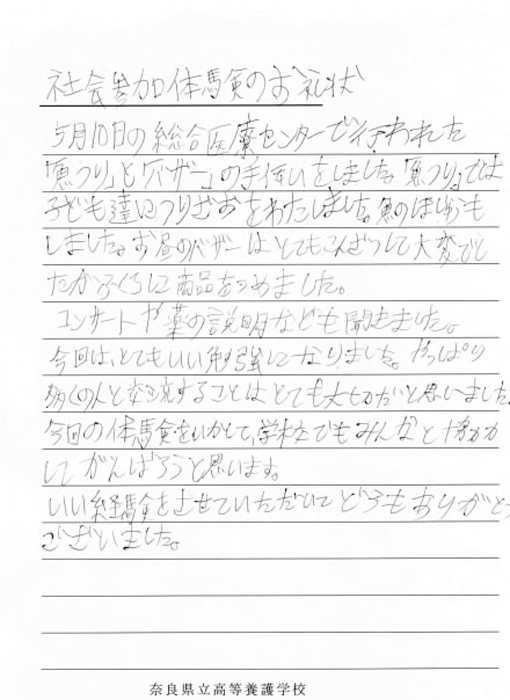 社会参加体験のお礼状
5月10日の総合医療センターで行われた
「魚つり」と「バザー」の手伝いをしました。「魚つり」では
子ども達につりざおをわたしました。魚のほじゅうも
しました。お昼のバザーはとてもこんざつして大変でし
たがふくろに商品をつめました。
コンサートや薬の説明なども聞きました。
今回は、とてもいい勉強になりました。やっぱり
多くの人と交流することはとても大切だと思いました。
今回の体験をいかして、学校でもみんなと協力
してがんばろうと思います。
いい経験をさせていただいてどうもありがとう
ございました。
奈良県立高等養護学校